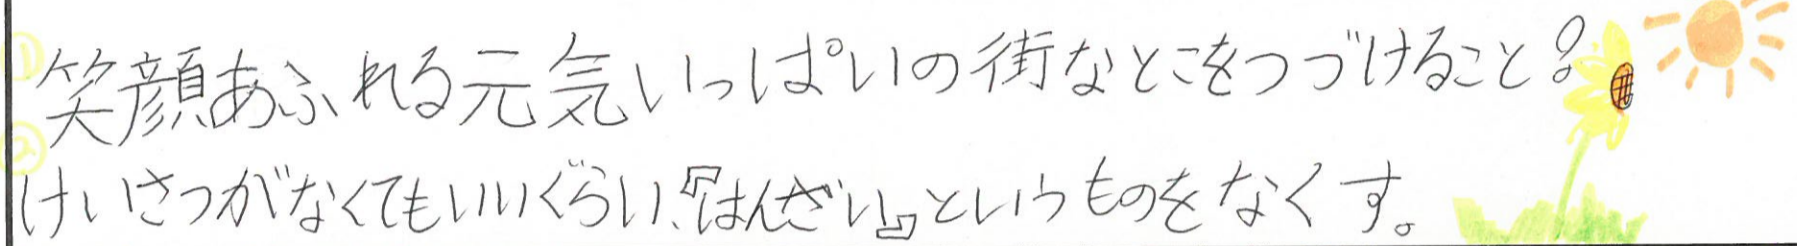 ①笑顔あふれる元気いっぱいの街なとこをつづけること!
②けいさつがなくてもいいぐらい、『はんざい』というものをなくす。